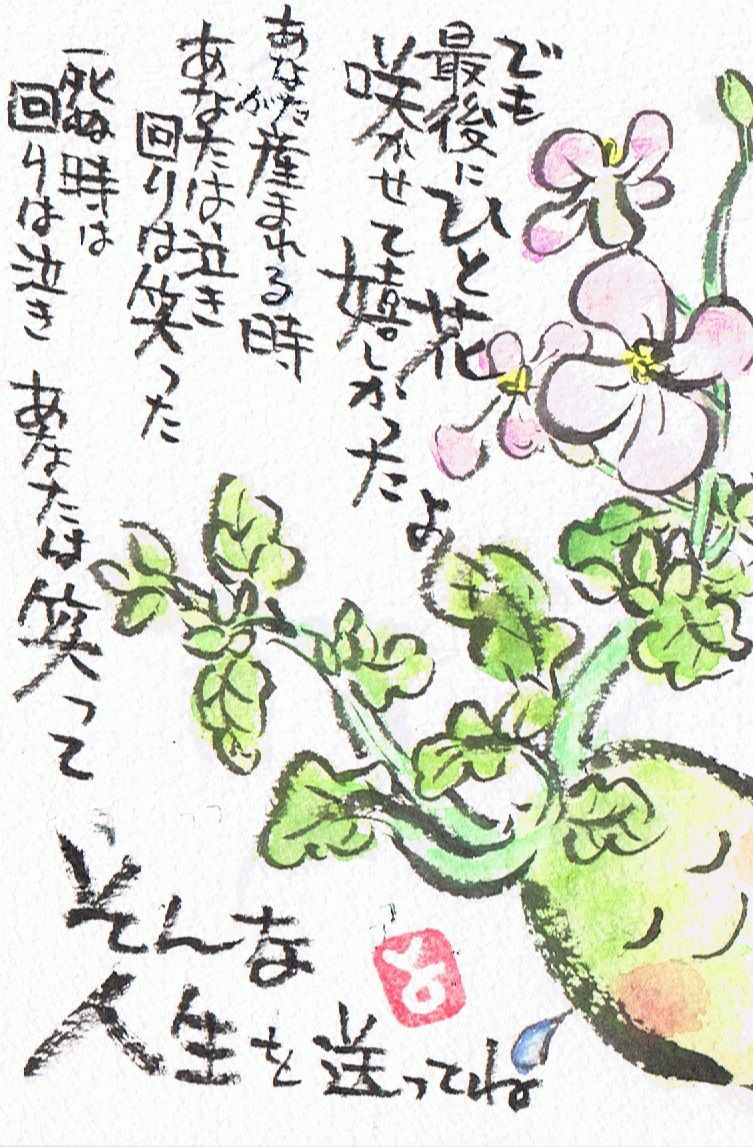 でも
最後にひと花
咲かせて嬉しかったよ
あなたが産まれる時
あなたは泣き
回りは笑った
死ぬ時は
回りは泣き あなたは笑って
そんな
人生を送ってね